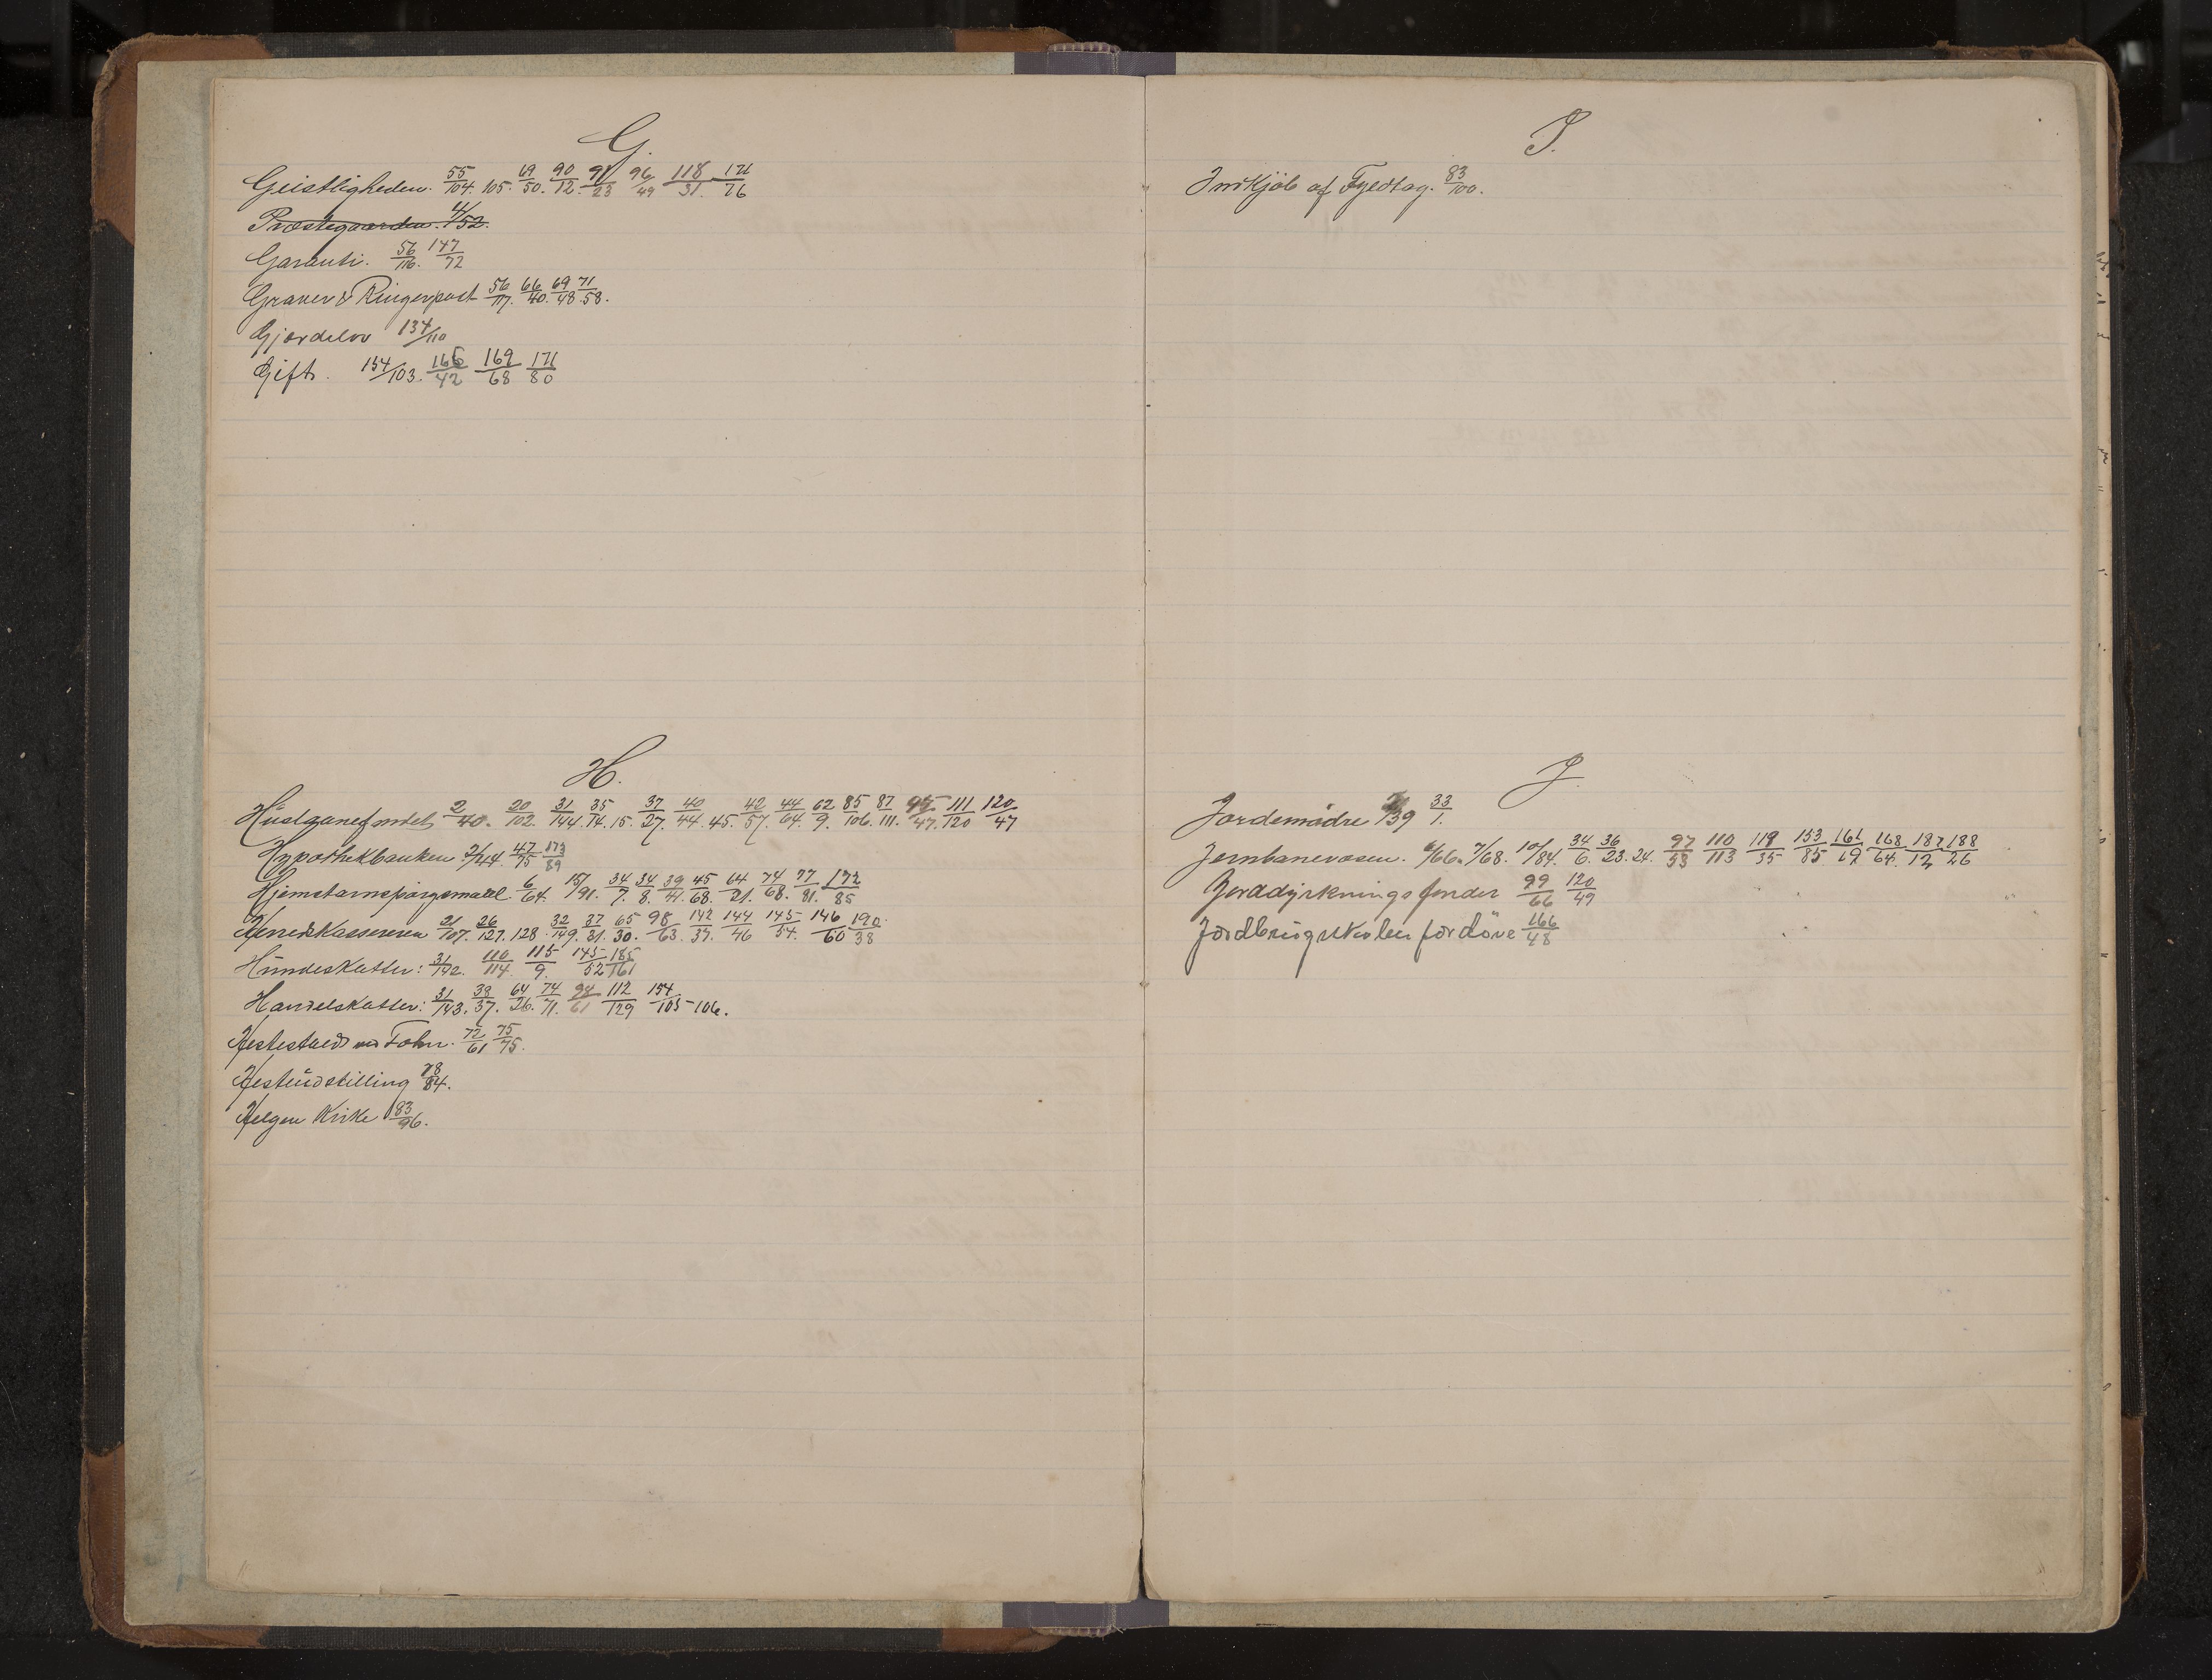 G.
Geistligheden. 55/104. 105. 69/50. 90/12. 91/23 96/49 118/31. 171/76
Præstegaarden. 4/52.
Garanti. 56/116. 147/72
Graver & Ringerpost 56/117. 66/40. 69/48. 71/58.
Gjærdelov 134/110
Gift. 154/103. 166/42 169/68 171/80
H.
2/40. 20/102. 31/144. 35/14. 15. 37/27. 40/44. 45. 42/57. 44/64. 62/9. 85/106. 87/111. 95/47. 111/120 120/47
Hypothekbanken 2/44 47/75 173/89
Hjemstavnspörgsmaal 6/64. 15/91. 34/7. 34/8. 39/41. 45/68. 64/21. 74/68. 77/81. 172/85
Herredskassereren 21/107. 26/127. 128. 32/149. 37/31. 65/30. 98/63. 142/37. 144/46 145/54. 146/60 190/38
Hundeskatter: 31/142. 110/114. 115/9. 145/52 185/161
Handelskatter: 31/143. 38/37. 64/26. 74/71. 98/61 112/129 154/105-106.
Hestestald ved 72/61 75/75.
Hesteudstilling 78/84.
Helgen Kirke 83/96.
I.
Indkjöb af 83/100.
J
Jordemödre /39 33/1.
Jernbanevæsen. 6/66. 7/68. 10/84. 34/6. 36/23. 24. 97/53 110/113 119/35 153/85 161/19 168/64. 187/12 188/26
Jorddyrkningsfondet 99/66 120/49
for döve 166/48